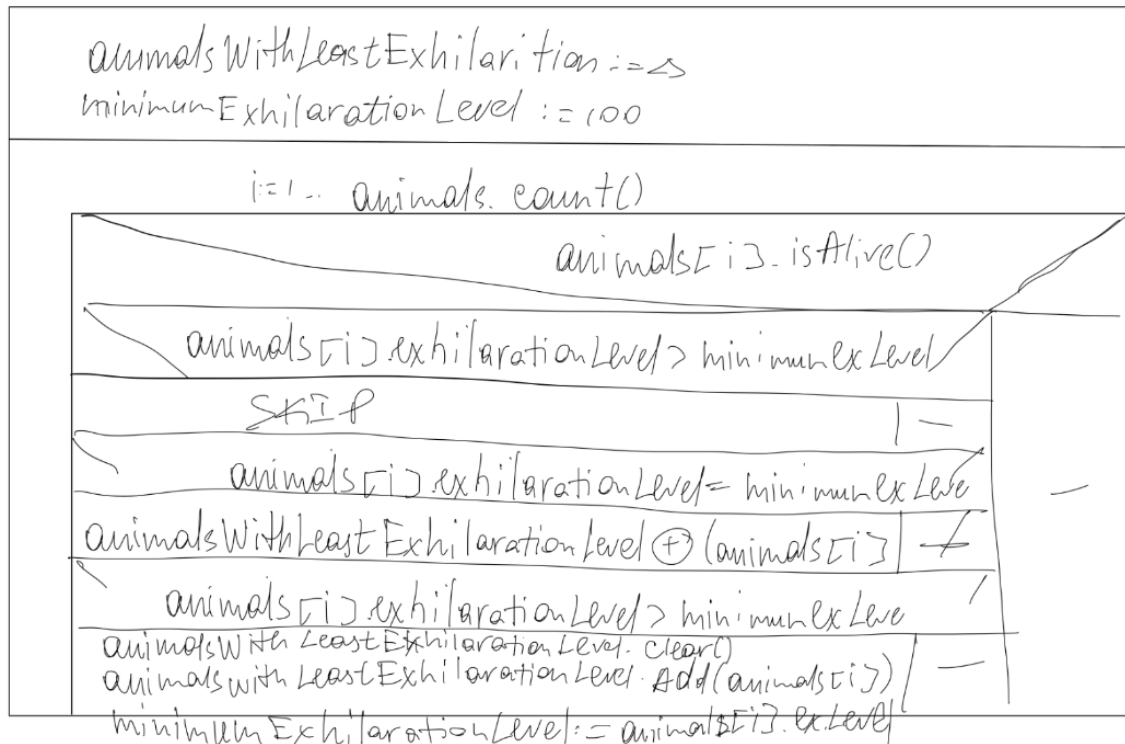 animalsWithLeastExhilarition :=
minimumExhilarationLevel := 100
i:=1.. animals.count()
animals[i].isAlive()
animals[i].exhilarationLevel > minimunexLevel
SKIP | -
animals[i].exhilarationLevel = minimunexLeve
-
animalsWithLeastExhilarationLevel ⊕ (animals[i]
animals[i].exhilarationLevel > minimunexLeve
animalsWithLeastExhilarationLevel.clear()
animalswithLeastExhilarationLevel.Add(animals[i]) -
minimumExhilarationLevel := animals[i].exLevel